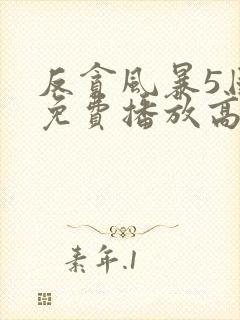 反貪風暴5
免費播放高
素年.1